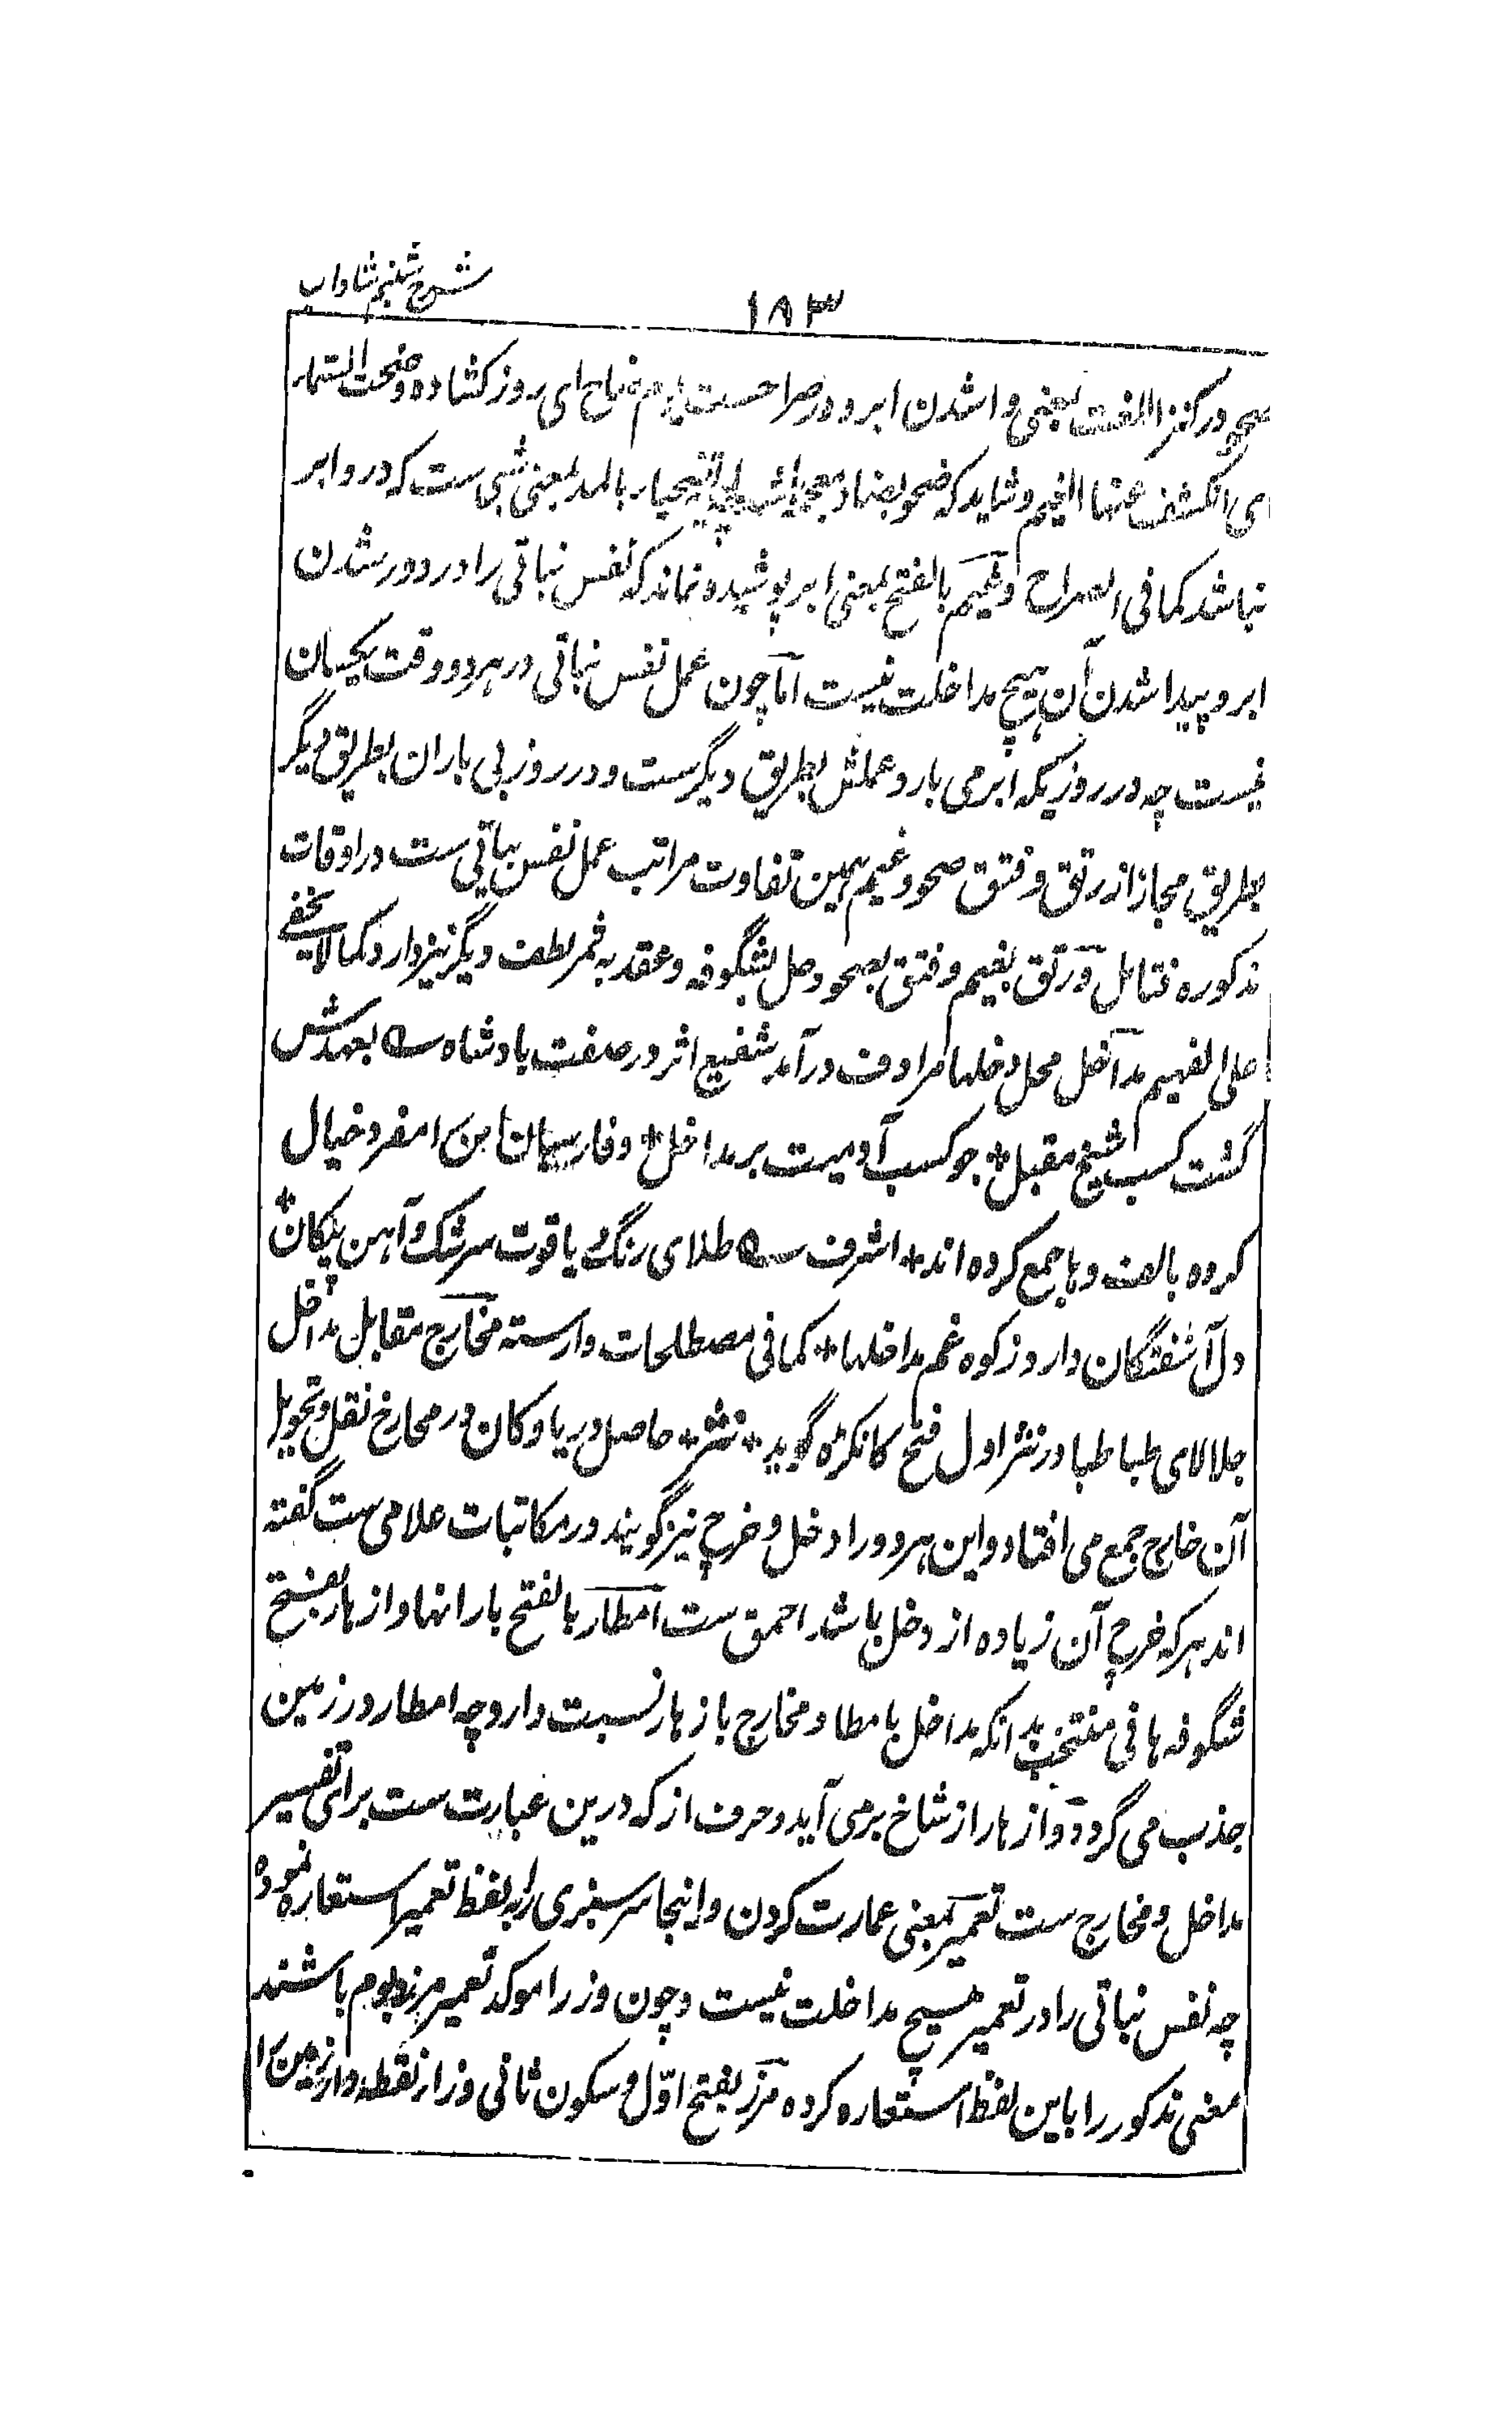 شرح شبنم شاداب
۱۸۳
صحو در کنز اللغت بمعنی وا شدن ابر و در صراحست یوم ای روز کشاده وضحت السماء
ای انکشف عنها الغیم و شاید که ضحو بضاد معجمه باشد بالمد بمعنی شبی ست که در و ابر
نباشد کما فی الصراح و غیم بالفتح بمعنی ابر پوشیده نماند که نفس نباتی را در دور شدن
ابر و پیدا شدن آن هیچ مداخلت نیست اما چون عمل نفس نباتی در هر دو وقت یکسان
نیست چه در روزیکه ابر می بارد عملش بطریق دیگرست و در روز بی باران بطریق دیگر
بطریق مجاز از رتق و فتق صحو و غیم همین تفاوت مراتب عمل نفس نباتی ست در اوقات
مذکوره فتامل و رتق بغیم و فتق بصحو و حل بشگوفه و عقد به ثمر لطف دیگر نیز دارد کما لا یخفی
علی الفهیم مداخل محل دخلها مرادف درآمد شفیع اثر در صفت بادشاه ؎ بعهدش
گشت کسب شیخ مقبل * جو کسب آدمیت بر مداخل * و فارسیان این را مفرد خیال
کرده بالف و ها جمع کرده اند * اشرف ؎ طلای رنگ و یاقوت سرشک و آهن پیکان *
دل آشفتگان دارد ز کوه غم مداخلها * کما فی مصطلحات وارسته مخارج مقابل مداخل
جلالای طباطبا در نثر اول فتح کانکره گوید * نثر * حاصل دریا و کان در مخارج نقل و تحویل
آن خارج جمع می افتاد و این هر دو را دخل و خرج نیز گویند در مکاتبات علامی ست گفته
اند هر که خرج آن زیاده از دخل باشد احمق ست امطار بالفتح بارانها و ازهار بفتح
شگوفه ها فی منتخب بدانکه مداخل با مطا و مخارج با زهار نسبت دارد چه امطار در زمین
جذب می گردد و ازهار از شاخ بر می آید و حرف از که درین عبارت ست برای تفسیر
مداخل و مخارج ست تعمیر بمعنی عمارت کردن و اینجا سرسبزی را به لفظ تعمیر استعاره نموده
چه نفس نباتی را در تعمیر هیچ مداخلت نیست و چون وزرا موکد تعمیر مرز و بوم باشند
معنی مذکور را باین لفظ استعاره کرده مرز بفتح اول و سکون ثانی و زاء نقطه دار زمین را